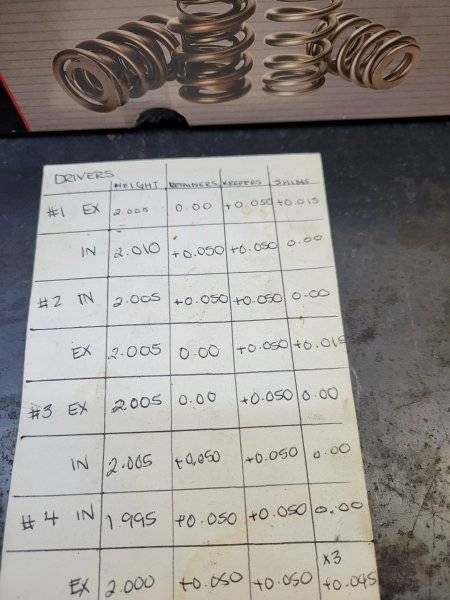 DRIVERS
HEIGHT RETAINERS KEEPERS SHIMS
#1 EX 2.005 0.00 +0.050 +0.015
IN 2.010 +0.050 +0.050 0.00
#2 IN 2.005 +0.050 +0.050 0.00
EX 2.005 0.00 +0.050 +0.015
#3 EX 2.005 0.00 +0.050 0.00
IN 2.005 +0.050 +0.050 0.00
#4 IN 1995 +0.050 +0.050 0.00
x3
EX 2.000 +0.050 +0.050 +0.045